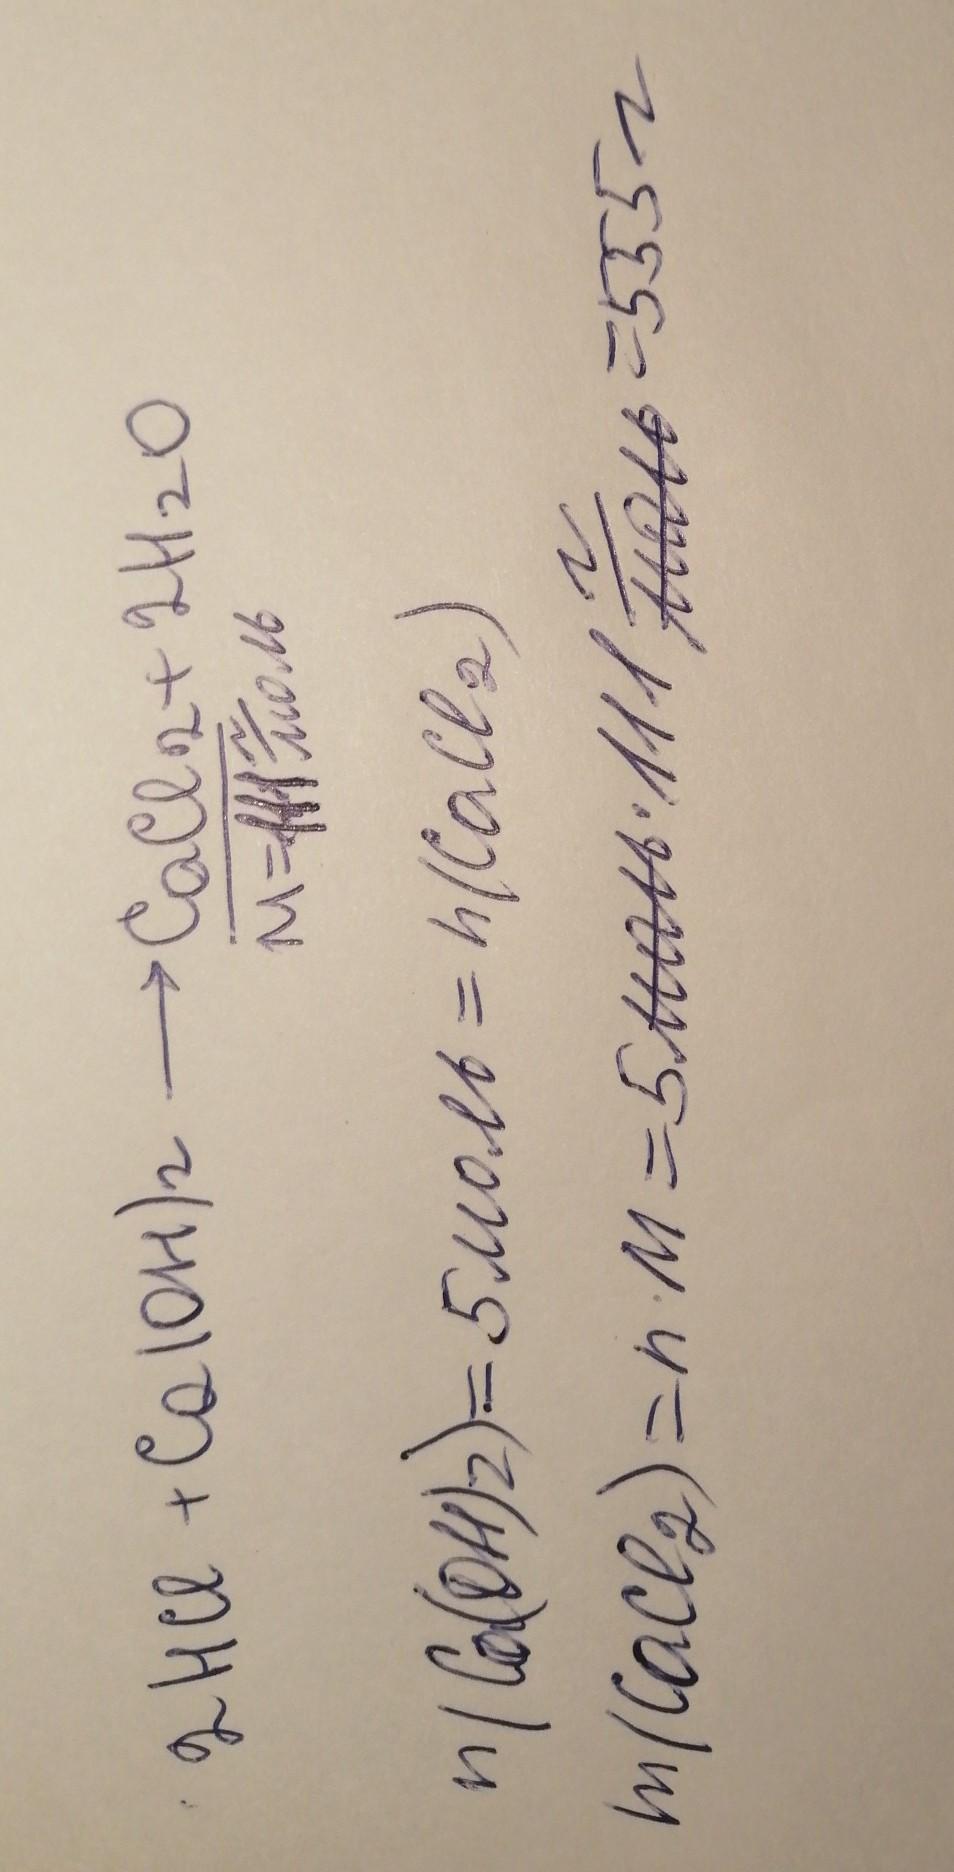 2HCl + Ca(OH)2 → CaCl2 + 2H2O
M=111 г/моль
n(Ca(OH)2)=5моль = n(CaCl2)
m(CaCl2)=n·M=5моль·111 г/моль=555г